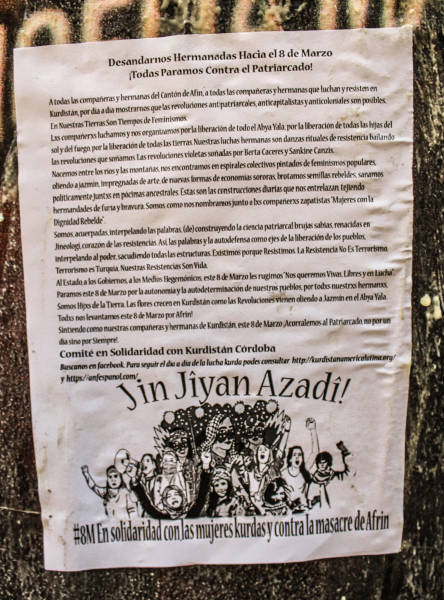 Desandarnos Hermanadas Hacia el 8 de Marzo
¡Todas Paramos Contra el Patriarcado!
A todas las compañeras y hermanas del Cantón de Afin, a todas las compañeras y hermanas que luchan y resisten en
Kurdistán, por día a día mostrarnos que las revoluciones antipatriarcales, anticapitalistas y anticoloniales son posibles.
En Nuestras Tierras Son Tiempos de Feminismos.
Lxs compañerxs luchamos y nos organizamos por la liberación de todo el Abya Yala, por la liberación de todas las hijas del
sol y del fuego, por la liberación de todas las tierras. Nuestras luchas hermanas son danzas rituales de resistencia bailando
las revoluciones que soñamos. Las revoluciones violetas soñadas por Berta Caceres y Sankine Canzis.
Nacemos entre los ríos y las montañas, nos encontramos en espirales colectivos pintados de feminismos populares,
oliendo a jazmín, impregnadas de arte, de nuevas formas de economías sororas, brotamos semillas rebeldes, sanamos
políticamente juntxs en pócimas ancestrales. Estas son las construcciones diarias que nos entrelazan, tejiendo
hermandades de furia y bravura. Somos como nos nombramos junto a lxs compañerxs zapatistas "Mujeres con la
Dignidad Rebelde".
Somos, acuerpadas, interpelando las palabras, (de) construyendo la ciencia patriarcal brujas sabias, renacidas en
Jineologi, corazón de las resistencias. Así, las palabras y la autodefensa como ejes de la liberación de los pueblos,
interpelando al poder, sacudiendo todas las estructuras. Existimos porque Resistimos. La Resistencia No Es Terrorismo,
Terrorismo es Turquía. Nuestras Resistencias Son Vida.
Al Estado, a los Gobiernos, a los Medios Hegemónicos, este 8 de Marzo les rugimos "Nos queremos Vivas, Libres y en Lucha"
Paramos este 8 de Marzo por la autonomía y la autodeterminación de nuestros pueblos, por todxs nuestrxs hermanxs.
Somos Hijxs de la Tierra. Las flores crecen en Kurdistán como las Revoluciones vienen oliendo a Jazmín en el Abya Yala.
Todxs nos levantamos este 8 de Marzo por Afrin!
Sintiendo como nuestras compañeras y hermanas de Kurdistán, este 8 de Marzo ¡Acorralemos al Patriarcado, no por un
día sino por Siempre!
Comité en Solidaridad con Kurdistán Córdoba
Buscanos en facebook. Para seguir el día a día de la lucha kurda podes consultar http://kurdistanamericalatina.org/
y https://anfespanol.com/
Jin Jîyan Azadî!
#8M En solidaridad con las mujeres kurdas y contra la masacre de Afrin